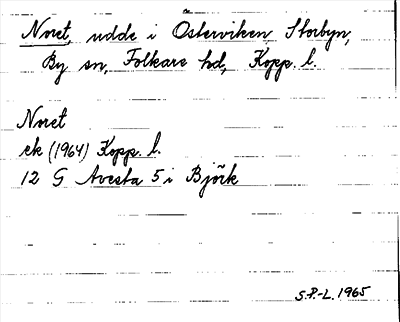 Noret, udde i Österviken, Storbyn,
By sn, Folkare hd, Kopp. l.
Noret
ek (1964) Kopp. l.
12 G Avesta 5 i Björk
S.P.-L. 1965